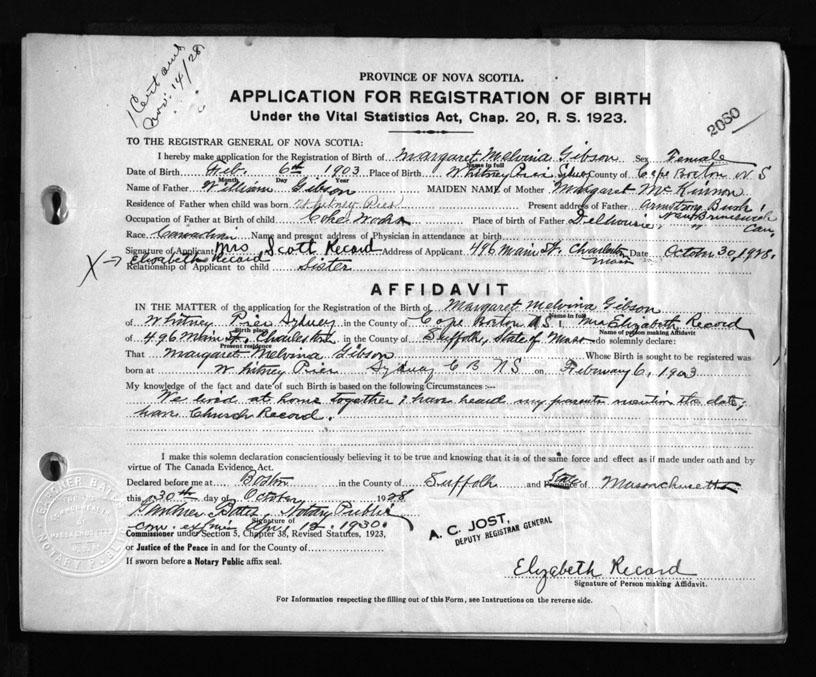 1 Cert and
Nov. 14/28
2050
PROVINCE OF NOVA SCOTIA.
APPLICATION FOR REGISTRATION OF BIRTH
Under the Vital Statistics Act, Chap. 20, R. S. 1923.
TO THE REGISTRAR GENERAL OF NOVA SCOTIA:
I hereby make application for the Registration of Birth of Margaret Melvina Gibson Sex Female
Name in full
Date of Birth Feb. 6th 1903 Place of Birth Whitney Pier Sydney County of Cape Breton N S
Month Day Year
Name of Father William Gibson MAIDEN NAME of Mother Margaret McKinnon
Residence of Father when child was born Whitney Pier Present address of Father Armstrong Brook
New Brunswick
Occupation of Father at Birth of child Coke Works Place of birth of Father Delhousie " Can
Race Canadian Name and present address of Physician in attendance at birth
Signature of Applicant Mrs Scott Record Address of Applicant 496 Main St. Charleston Date October 30, 1928.
X → Elizabeth Record Mass
Relationship of Applicant to child Sister
AFFIDAVIT
IN THE MATTER of the application for the Registration of the Birth of Margaret Melvina Gibson
Name in full
of Whitney Pier Sydney in the County of Cape Breton N.S. I, Mrs Elizabeth Record
Birth place Name of person making Affidavit
of 496 Main St. Charleston in the County of Suffolk, State of Mass do solemnly declare:
Present residence
That Margaret Melvina Gibson Whose Birth is sought to be registered was
born at Whitney Pier Sydney C B N S on February 6, 1903
My knowledge of the fact and date of such Birth is based on the following Circumstances :--
We lived at home together & have heard my parents mention the date;
have Church Record.
I make this solemn declaration conscientiously believing it to be true and knowing that it is of the same force and effect as if made under oath and by
virtue of The Canada Evidence Act.
Declared before me at Boston in the County of Suffolk and State of Massachusetts
this 30th day of October 1928
Gardner Bates, Notary Public
Signature of
com. expires Apr. 12, 1930.
Commissioner under Section 5, Chapter 38, Revised Statutes, 1923,
or Justice of the Peace in and for the County of
If sworn before a Notary Public affix seal.
A. C. JOST,
DEPUTY REGISTRAR GENERAL
GARDNER BATES
NOTARY PUBLIC
Elizabeth Record
Signature of Person making Affidavit.
For Information respecting the filling out of this Form, see Instructions on the reverse side.